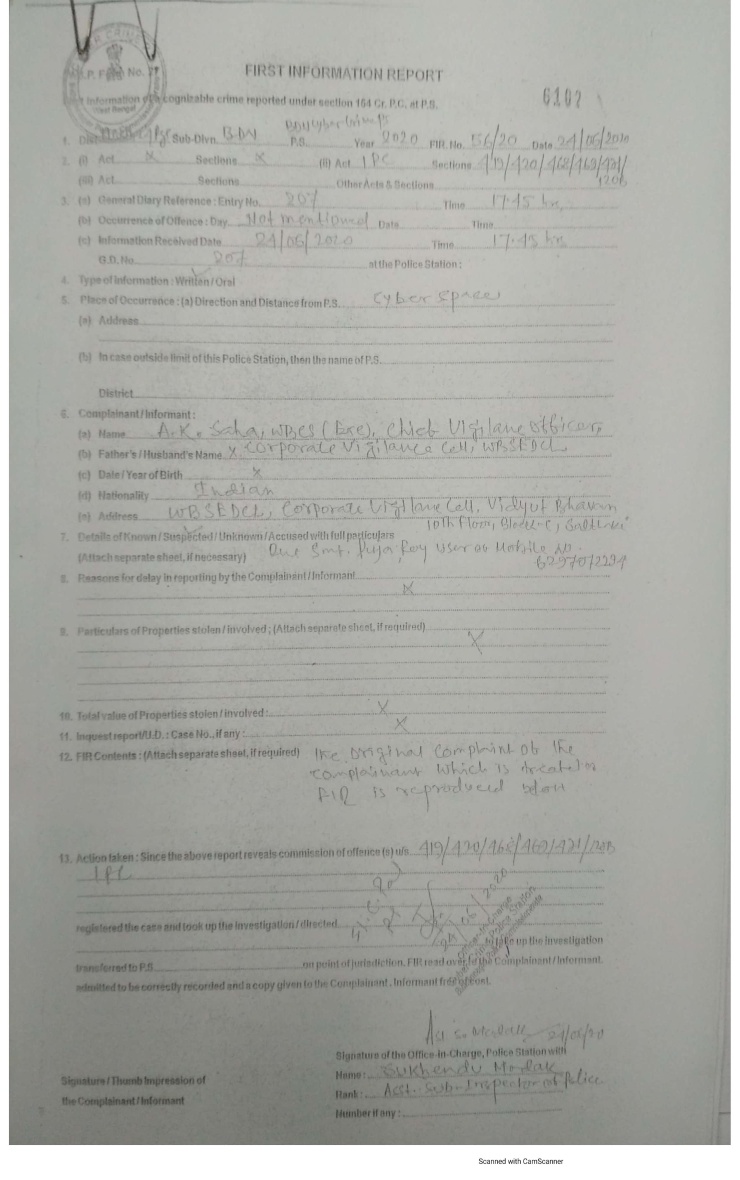 FIRST INFORMATION REPORT
6102
Information of a cognizable crime reported under section 154 Cr. P.C. at P.S.
1. Sub-Divn. BDN P.S. Year 2020 FIR No. 56/20 Date 24/06/2020
2. (i) Act X Sections X (ii) Act IPC Sections 419/420/468/469/471/
120B
(iii) Act Sections Other Acts & Sections
3. (a) General Diary Reference : Entry No. 207 Time 17.45 hrs
(b) Occurrence of Offence : Day Not mentioned Date Time
(c) Information Received Date 24/06/2020 Time 17.45 hrs
G.D. No. 207 at the Police Station :
4. Type of information : Written / Oral
5. Place of Occurrence : (a) Direction and Distance from P.S. Cyber Space
(a) Address
(b) In case outside limit of this Police Station, then the name of P.S.
District
6. Complainant / Informant :
(a) Name A.K. Saha, WBCS (Exe), Chief Vigilance Officer,
(b) Father's / Husband's Name X Corporate Vigilance Cell, WBSEDCL
(c) Date / Year of Birth X
(d) Nationality Indian
(e) Address WBSEDCL, Corporate Vigilance Cell, Vidyut Bhavan
10th Floor, Block-C, Saltlake
7. Details of Known / Suspected / Unknown / Accused with full particulars
(Attach separate sheet, if necessary) One Smt. Roy user of Mobile No.
6297072294
8. Reasons for delay in reporting by the Complainant / Informant
X
9. Particulars of Properties stolen / involved ; (Attach separate sheet, if required)
X
10. Total value of Properties stolen / involved : X
11. Inquest report/U.D. : Case No., if any : X
12. FIR Contents : (Attach separate sheet, if required) The original complaint of the
complainant which is treated as
FIR is reproduced below
13. Action taken : Since the above report reveals commission of offence (s) u/s 419/420/468/469/471/120B
IPC
registered the case and took up the investigation / directed
24/06/2020
to take up the investigation
transferred to P.S. on point of jurisdiction. FIR read over to the Complainant / Informant
admitted to be correctly recorded and a copy given to the Complainant . Informant free of cost.
Signature of the Office-in-Charge, Police Station with
Name : Sukhendu Modak
Signature / Thumb Impression of
Rank : Asst. Sub-Inspector of Police
the Complainant / Informant
Number if any :
Scanned with CamScanner